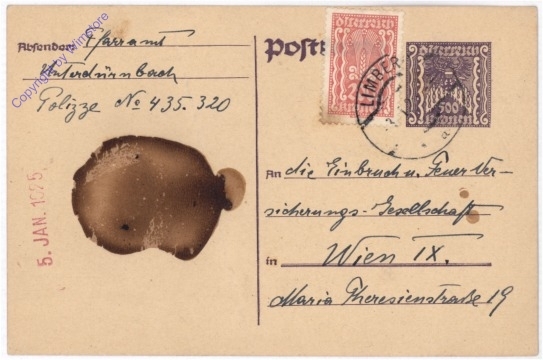 Absender: Pfarramt
Unterdürnbach
Polizze No 435.320
Copyright by Wimstore
5. JAN. 1925
Österreich
Kronen
LIMBER
Österreich
500
Kronen
An die Einbruch u. Feuer Ver-
sicherungs-Gesellschaft
in Wien IX.
Maria Theresienstraße 19